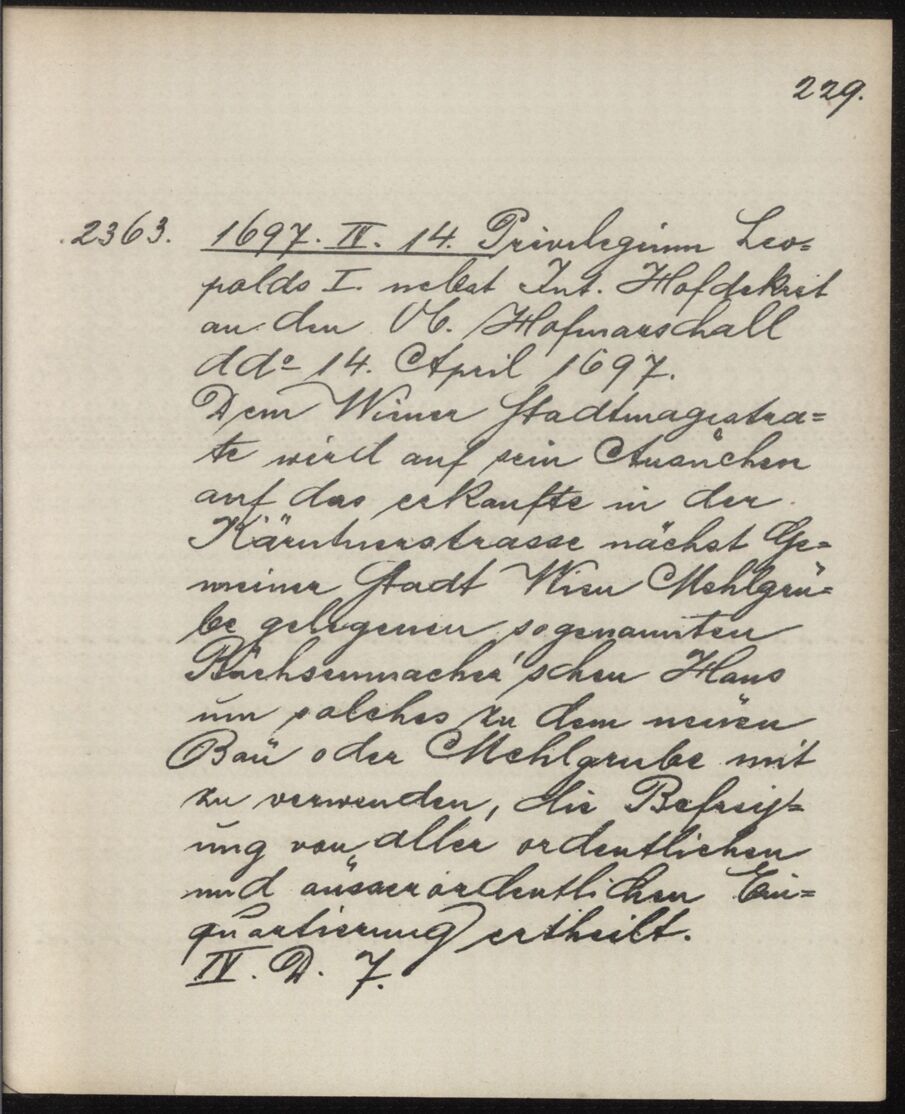 229.
2363. 1697. IV. 14. Privilegium Leo=
polds I. nebst Int. Hofdekret
an den Ob. Hofmarschall
ddo 14. April 1697.
Dem Wiener Stadtmagistra=
te wird auf sein Ansuchen
auf das erkaufte in der
Kärntnerstrasse nächst Ge=
meiner Stadt Wien Mehlgru=
be gelegenen sogenannten
Büchsenmacher'schen Haus
um solches zu dem neuen
Bau oder Mehlgrube mit
zu verwenden, die Befreiy=
ung von aller ordentlichen
und ausserordentlichen Ein=
quartierung ertheilt.
IV. D. 7.